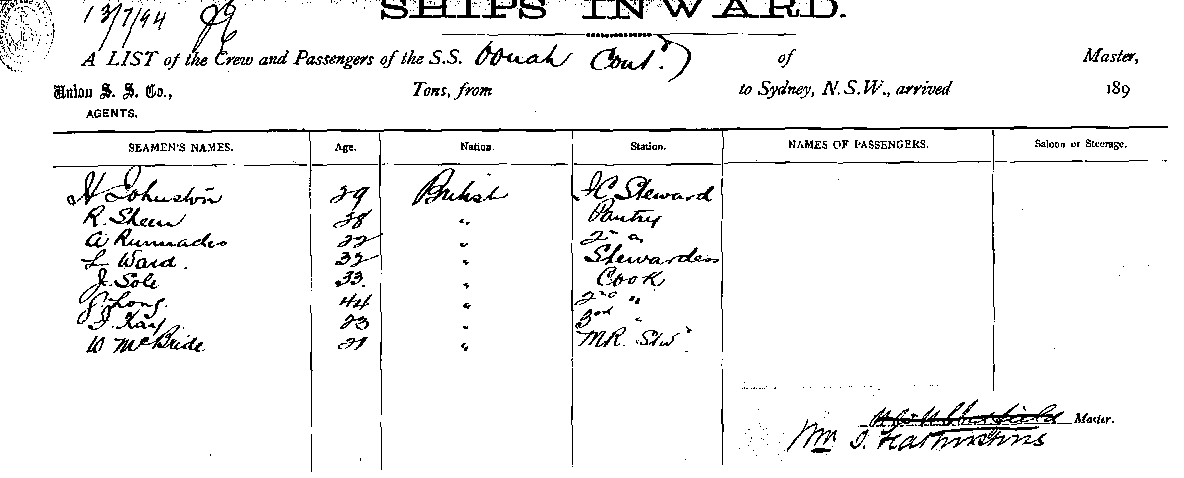 SHIPS INWARD.
13/7/94
A LIST of the Crew and Passengers of the S.S. Oonah Cont.d) of Master,
Union S. S. Co., Tons, from to Sydney, N.S.W., arrived 189
AGENTS.
SEAMEN'S NAMES. Age. Nation. Station. NAMES OF PASSENGERS. Saloon or Steerage.
H Johnston 29 British F C Steward
R. Sheen 28 " Pantry
A 22 " 2nd "
L Ward. 32 " Stewardess
J. Sole 33. " Cook
Long. 44 " 2nd "
Kay. 23 " 3rd "
W McBride. 21 " M.R. Stwd
Master.
Wm